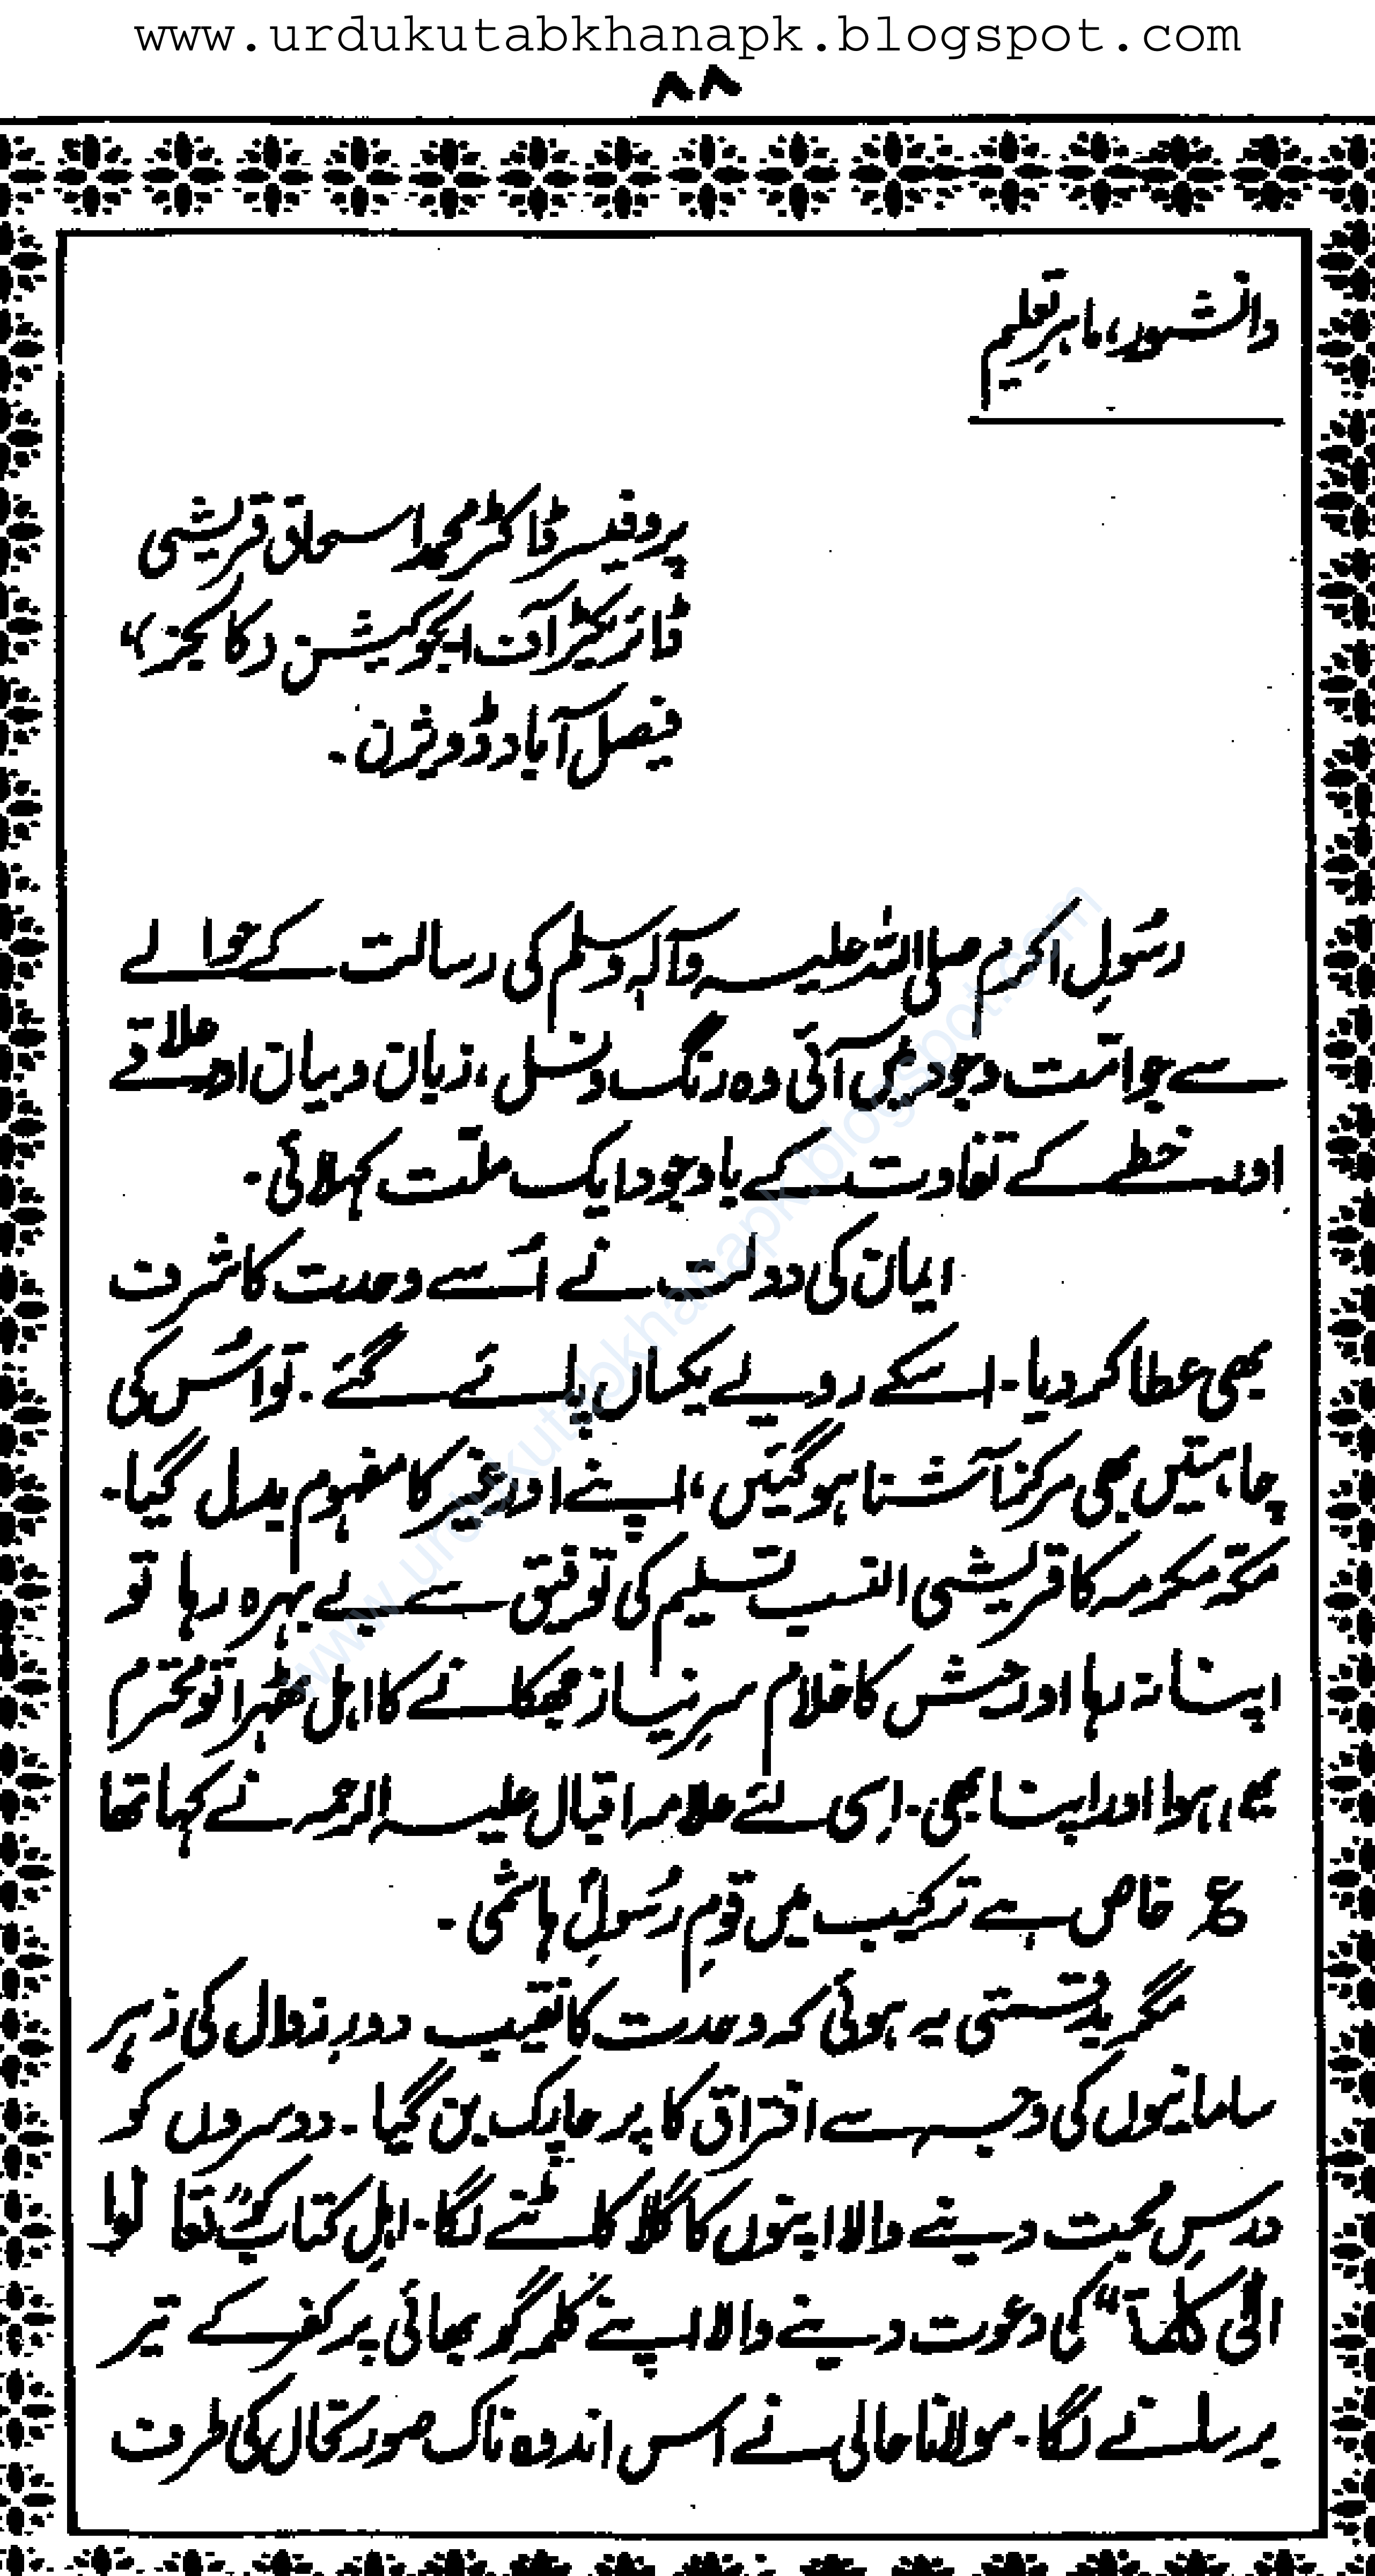 www.urdukutabkhanapk.blogspot.com
۸۸
دانشور، ماہرِ تعلیم
پروفیسر ڈاکٹر محمد اسحاق قریشی
ڈائریکٹر آف ایجوکیشن (کالجز)،
فیصل آباد ڈویژن۔
رسُولِ اکرم صلی اللہ علیہ وآلہٖ وسلم کی رسالت کے حوالے
سے جو امّت وجود میں آئی وہ رنگ و نسل، زبان و بیان اور علاقے
اور خطے کے تفاوت کے باوجود ایک ملّت کہلائی۔
ایمان کی دولت نے اُسے وحدت کا شرف
بھی عطا کر دیا۔ اسکے رویے یکساں پائے گئے۔ تو اُس کی
چاہتیں بھی مرکز آشنا ہو گئیں، اپنے اور غیر کا مفہوم بدل گیا۔
مکّہ مکرمہ کا قریشی النسب تسلیم کی توفیق سے بے بہرہ رہا تو
اپنا نہ رہا اور حبش کا غلام سرِ نیاز جھکانے کا اہل ٹھہرا تو محترم
بھی ہوا اور اپنا بھی۔ اِسی لئے علامہ اقبال علیہ الرحمہ نے کہا تھا
ع خاص ہے ترکیب میں قومِ رسُولِؐ ہاشمی۔
مگر بدقسمتی یہ ہوئی کہ وحدت کا نقیب دورِ زوال کی زہر
سامانیوں کی وجہ سے افتراق کا پرچارک بن گیا۔ دوسروں کو
درسِ محبت دینے والا اپنوں کا گلا کاٹنے لگا۔ اہلِ کتاب کو "تعا لوا
الیٰ کلمۃ" کی دعوت دینے والا اپنے کلمہ گو بھائی پر کفر کے تیر
برسانے لگا۔ مولانا حالی نے اس اندوہ ناک صورتحال کی طرف
www.urdukutabkhanapk.blogspot.com